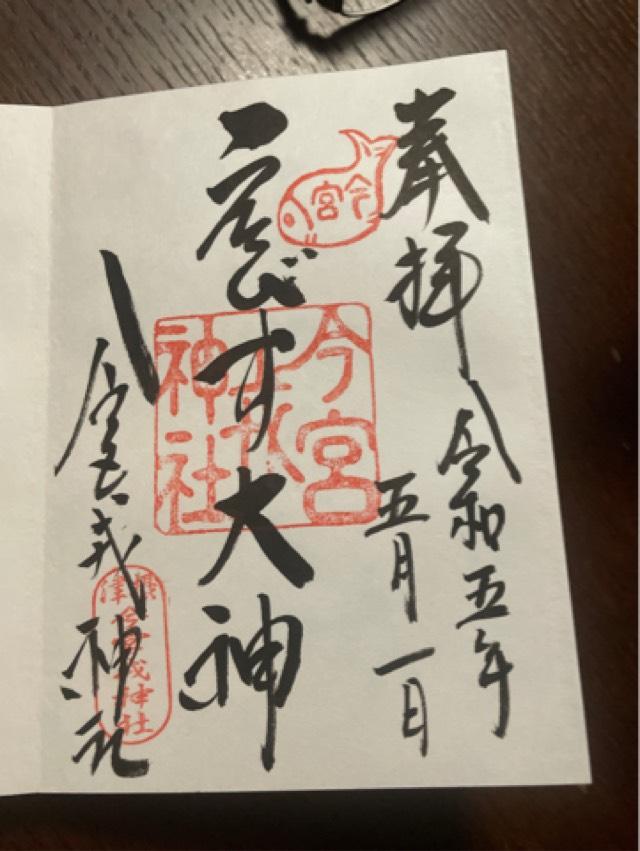 奉拝
令和五年
五月一日
今宮
ゑびす大神
今宮
戎
神社
今宮戎神社
攝津
今宮戎神社